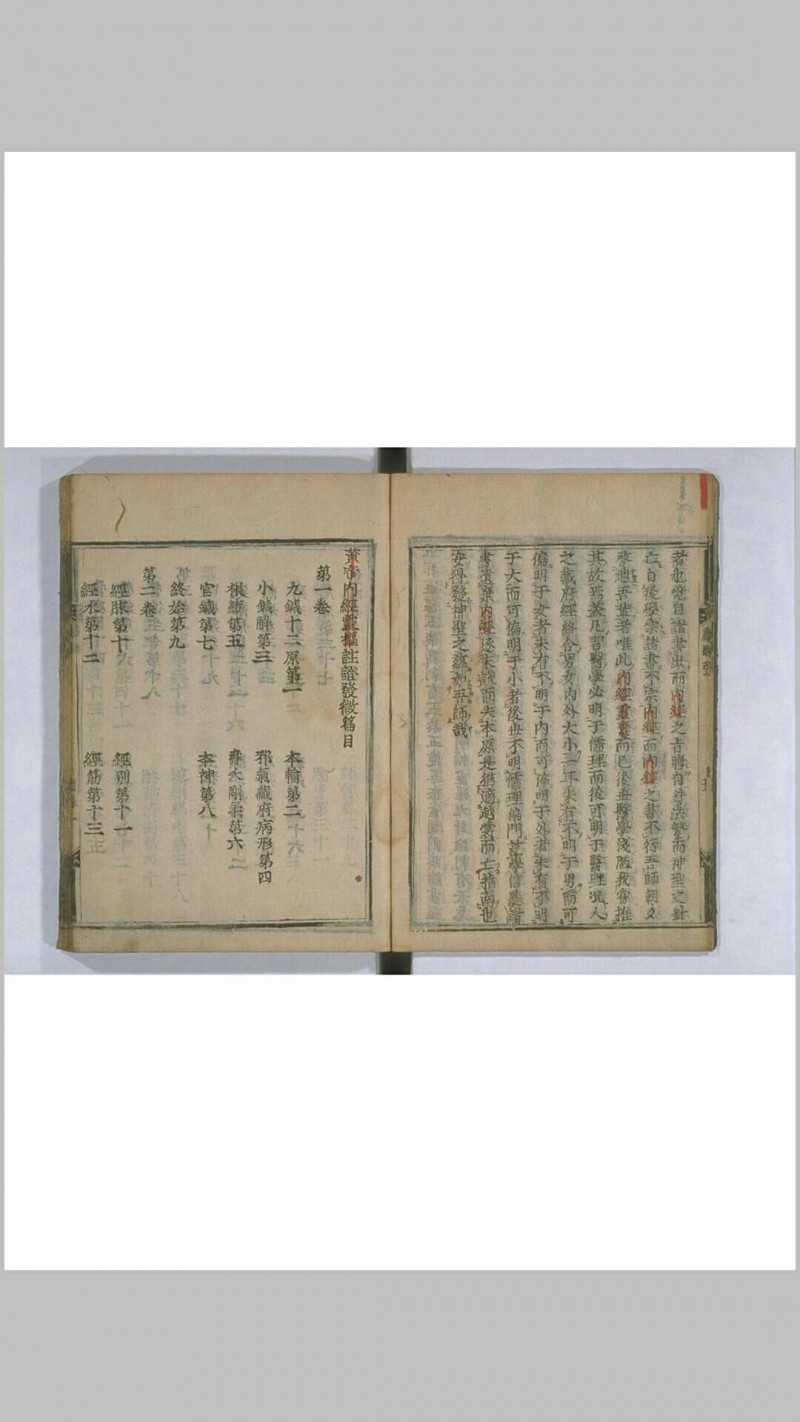 者也噫自諸書出而內經之旨晦自
而神聖之針
亡自後學宗諸書不宗內經而內經之書不行吾師朝夕
啓迪吾輩者唯此內經靈素而已後世醫學淺陋我嘗推
其故焉蓋凡習醫學必明于儒理而後可明于醫理況人
之藏府經絡合男女內外大小一耳未有不明于男而可
偏明于女者未有不明于內而可偏明于外者未有不明
于大而可偏明于小者後世不明儒理偏門
學信
諸
書
棄內經逐末
而失本原是猶適越
而亡指南也
安得發神聖之蘊如吾師哉
黃帝內經靈樞註證發微篇目
第一卷
九鍼十二原第一 本輸第二
小鍼解第三 邪氣藏府病形第四
根結第五 壽夭剛柔第六
官鍼第七 本神第八
終始第九
第二卷
經脈第十 經別第十一
經水第十二 經筋第十三